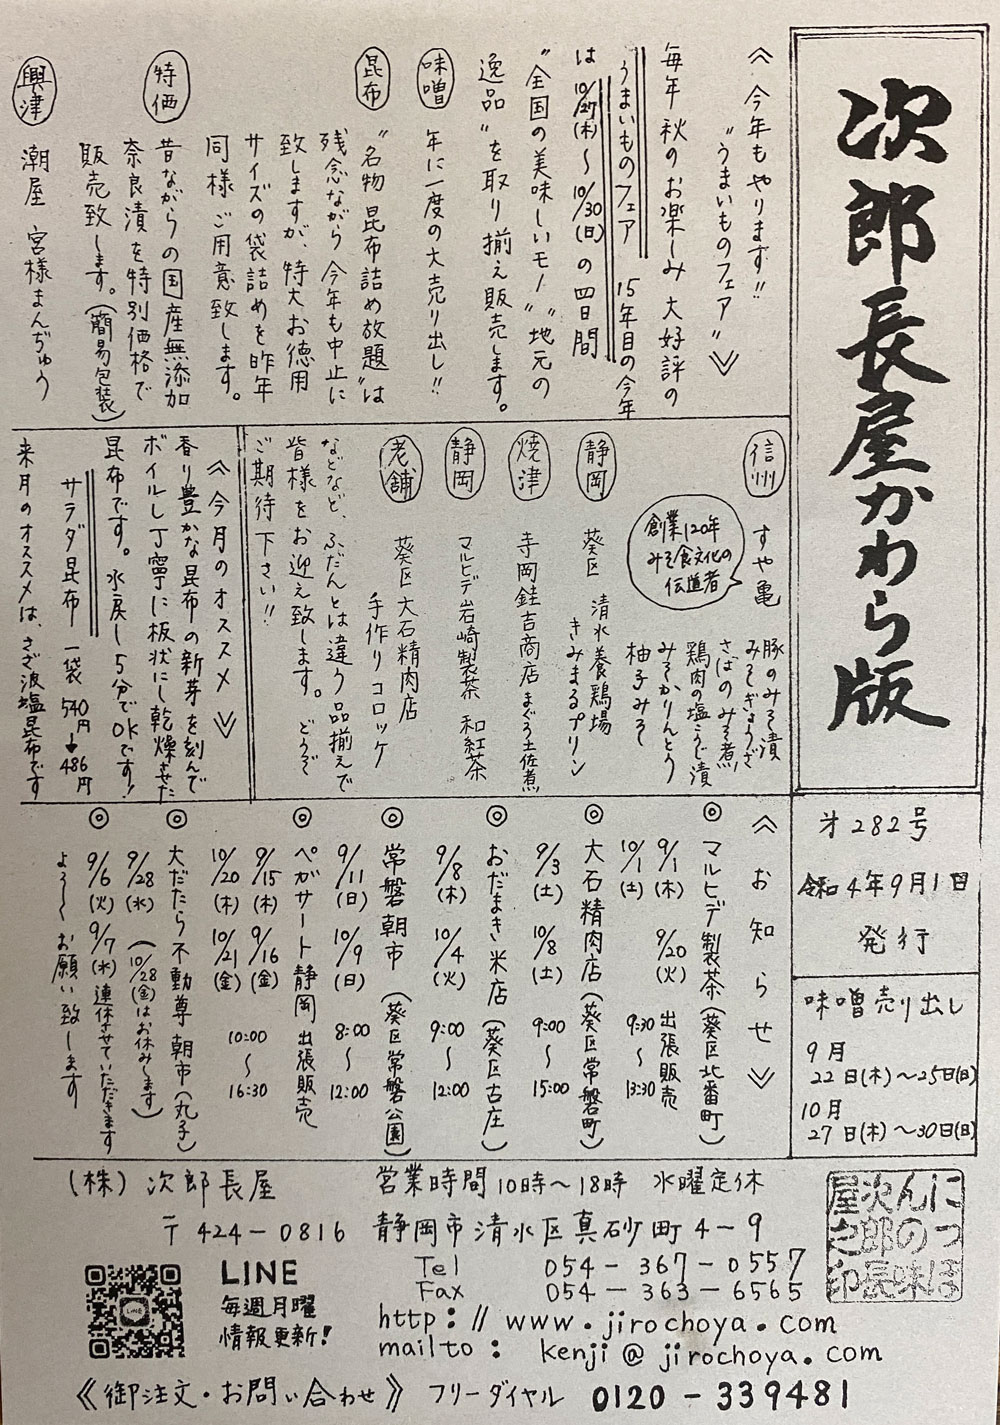 次郎長屋かわら版
≪今年もやります!!
〝うまいものフェア〟≫
毎年秋のお楽しみ 大好評の
うまいものフェア 15年目の今年
は10/27(木)～10/30(日)の四日間
〝全国の美味しいモノ〟〝地元の
逸品〟を取り揃え販売します。
味噌 年に一度の大売り出し!!
昆布 〝名物昆布詰め放題〟は
残念ながら今年も中止に
致しますが、特大お徳用
サイズの袋詰めを昨年
同様ご用意致します。
特価 昔ながらの国産無添加
奈良漬を特別価格で
販売致します。(簡易包装)
興津 潮屋 宮様まんぢゅう
信州 すや亀
創業120年
みそ食文化の
伝道者
豚のみそ漬
みそぎょうざ
さばのみそ煮
鶏肉の塩こうじ漬
みそかりんとう
柚子みそ
静岡 葵区 清水養鶏場
きみまるプリン
焼津 寺岡銈吉商店 まぐろ土佐煮
静岡 マルヒデ岩崎製茶 和紅茶
老舗 葵区 大石精肉店
手作りコロッケ
などなど、ふだんとは違う品揃えで
皆様をお迎え致します。どうぞ
ご期待下さい!!
≪今月のオススメ≫
香り豊かな昆布の新芽を刻んで
ボイルし丁寧に板状にし乾燥させた
昆布です。水戻し5分でOKです!
サラダ昆布 一袋 540円→486円
来月のオススメは、さざ波塩昆布です
才282号
令和4年9月1日
発行
味噌売り出し
9月
22日(木)～25日(日)
10月
27日(木)～30日(日)
≪お知らせ≫
◎マルヒデ製茶(葵区北番町)
9/1(木) 9/20(火) 出張販売
10/1(土) 9:30～13:30
◎大石精肉店(葵区常磐町)
9/3(土) 10/8(土) 9:00～15:00
◎おだまき米店(葵区古庄)
9/8(木) 10/4(火) 9:00～12:00
◎常磐朝市(葵区常磐公園)
9/11(日) 10/9(日) 8:00～12:00
◎ペガサート静岡 出張販売
9/15(木) 9/16(金) 10:00～16:30
10/20(木) 10/21(金)
◎大だたら不動尊 朝市(丸子)
9/28(水) (10/28(金)はお休みします)
◎9/6(火) 9/7(水) 連休させていただきます
よろしくお願い致します
(株)次郎長屋 営業時間10時～18時 水曜定休
〒424-0816 静岡市清水区真砂町4-9
Tel 054-367-0557
Fax 054-363-6565
LINE
毎週月曜
情報更新!
http://www.jirochoya.com
mailto: kenji@jirochoya.com
にっぽ
んの味
次郎長
屋之印
≪御注文・お問い合わせ≫ フリーダイヤル 0120-339481